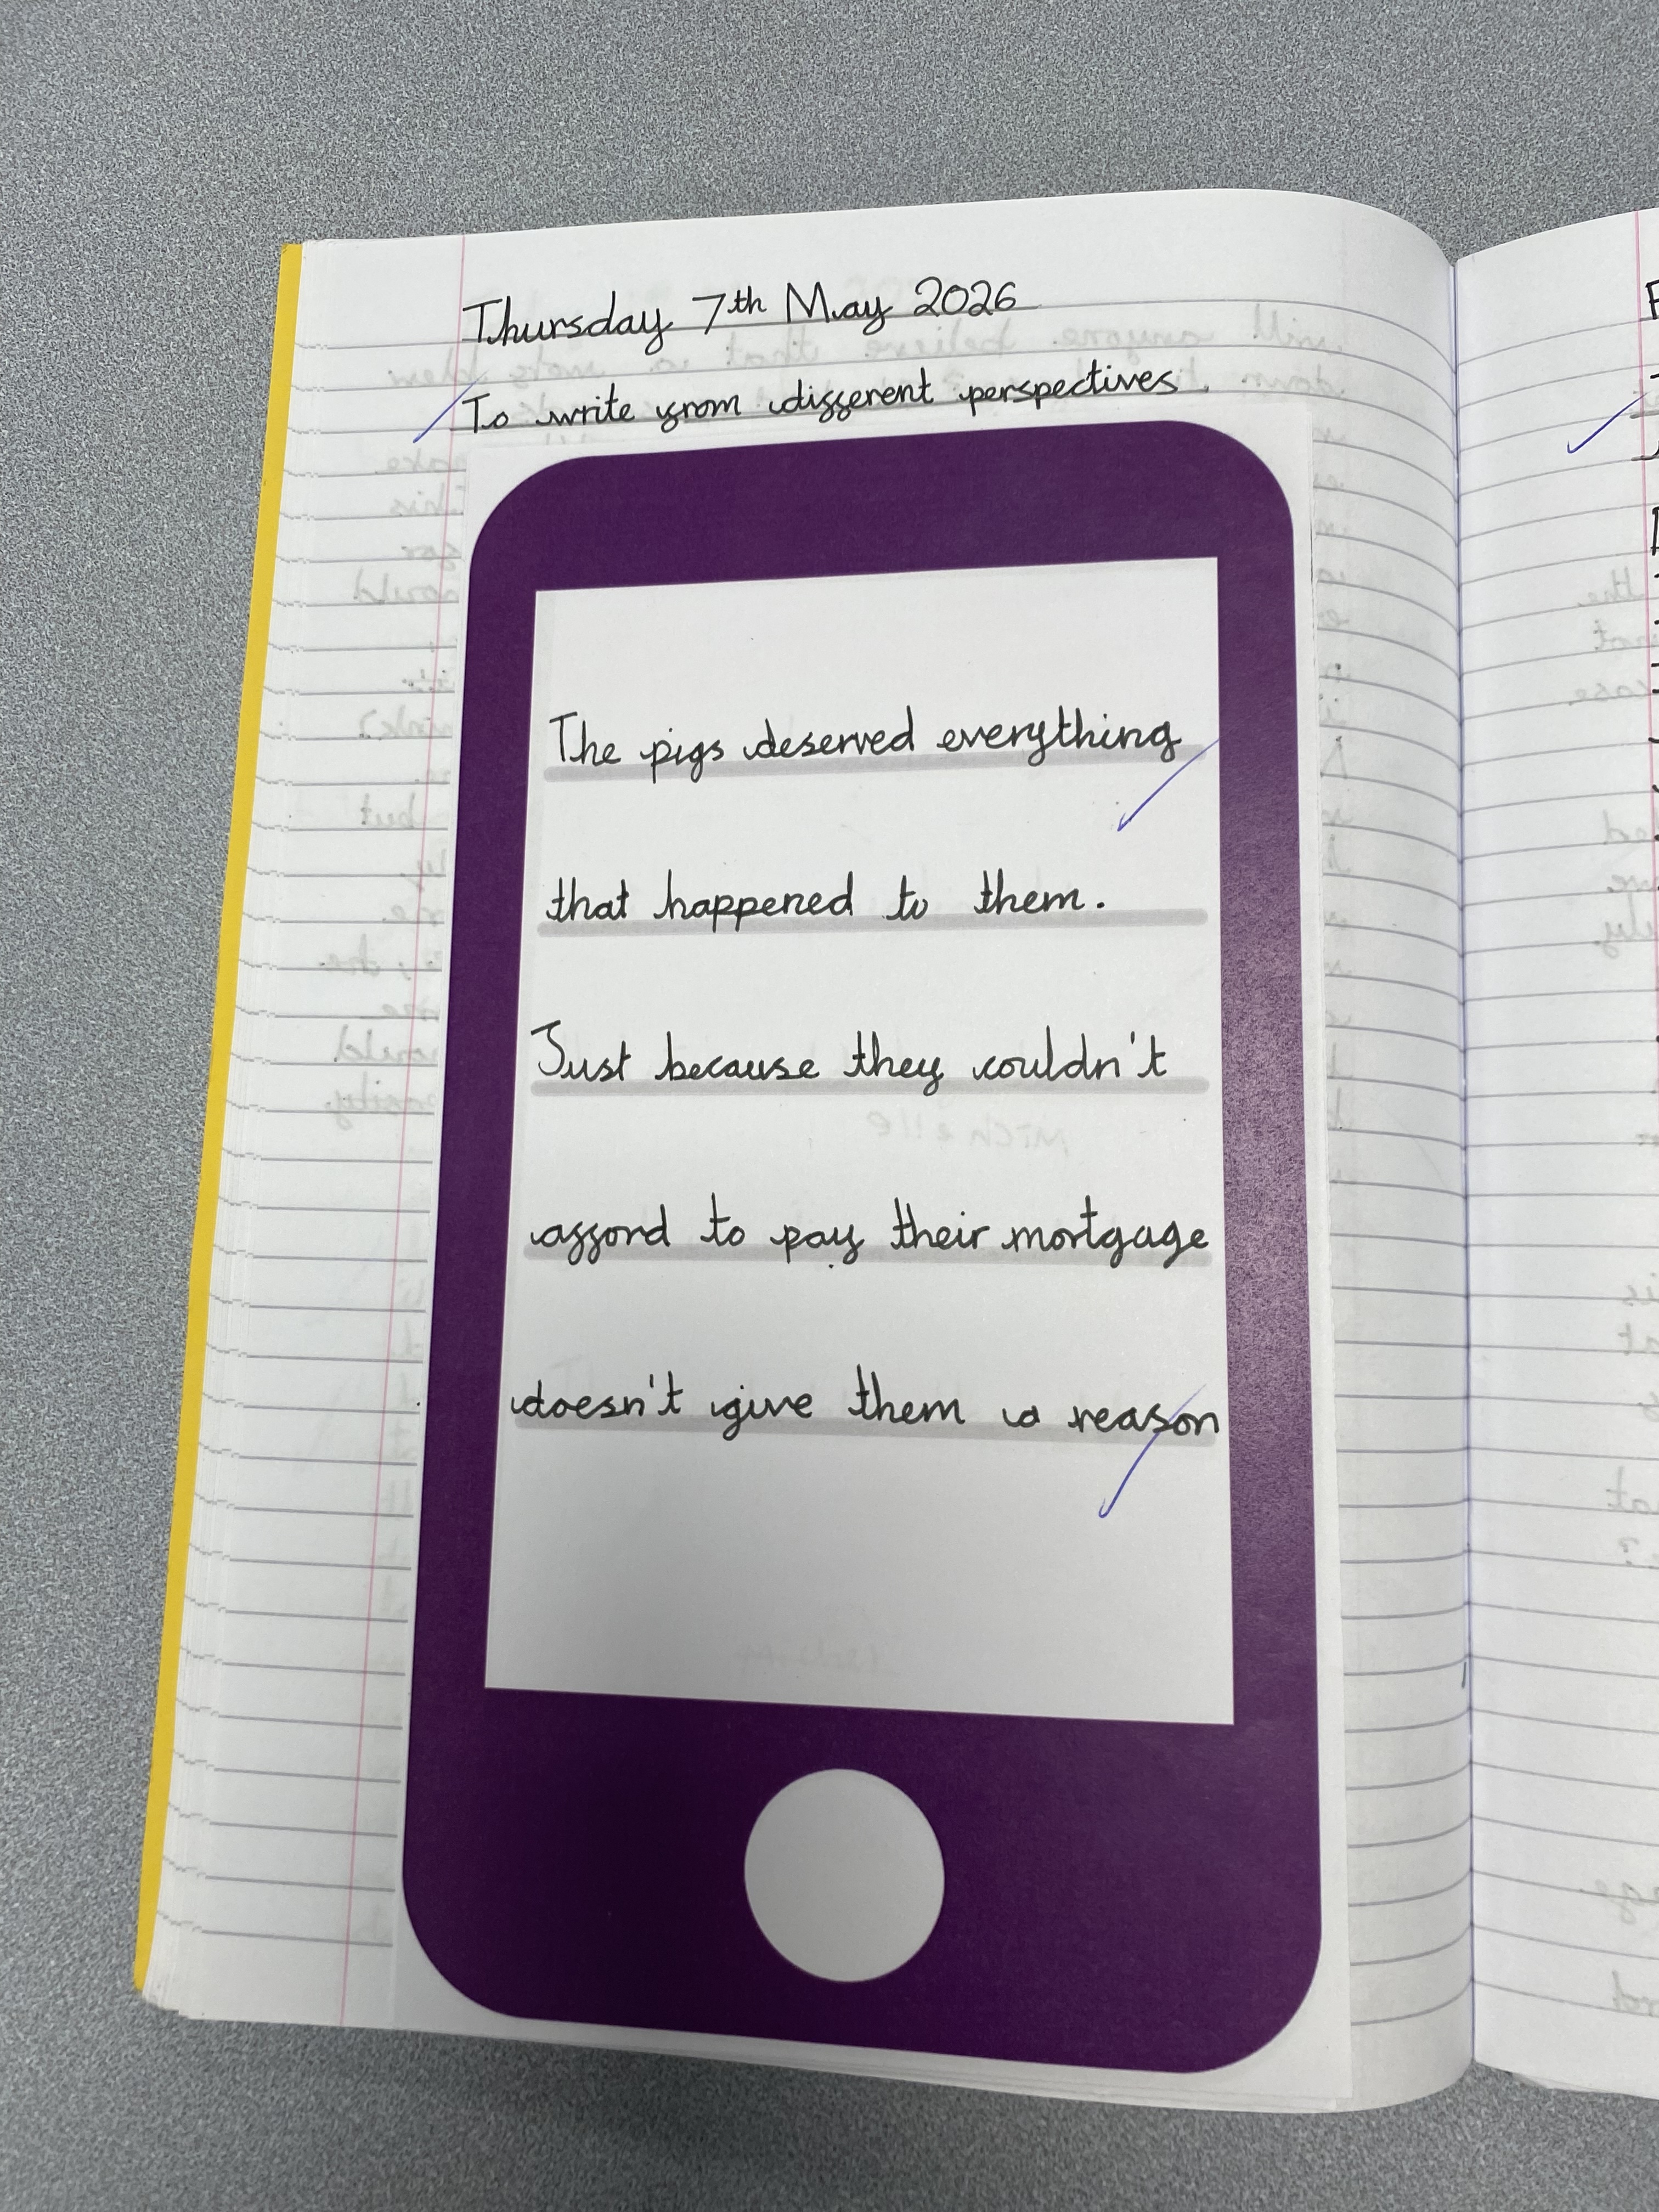 Thursday 7th May 2026
To write from different perspectives.
The pigs deserved everything
that happened to them.
Just because they couldn't
afford to pay their mortgage
doesn't give them a reason